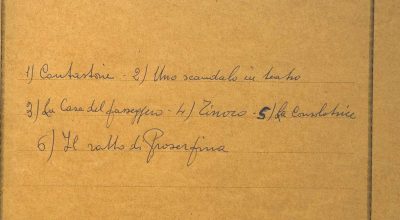 1) Cantastorie - 2) Uno scandalo in teatro
3) La Casa del passeggero - 4) Zinoco - 5) La Consolatrice
6) Il ratto di Proserpina